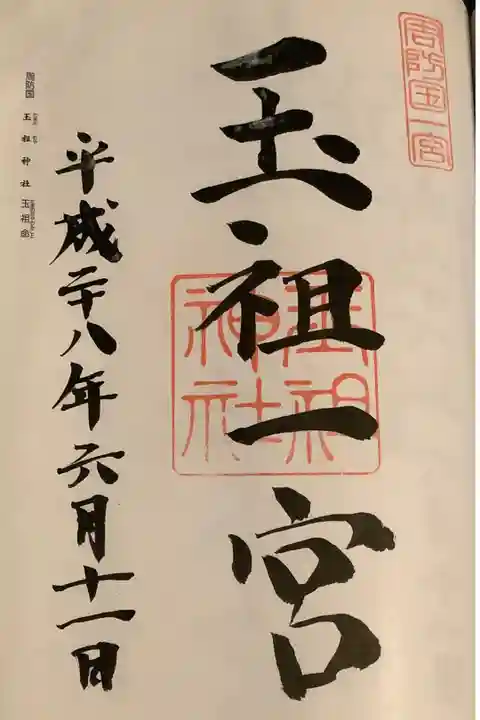 周防国一宮
玉祖一宮
玉祖神社
平成二十八年六月十一日
周防国 玉祖神社 玉祖命